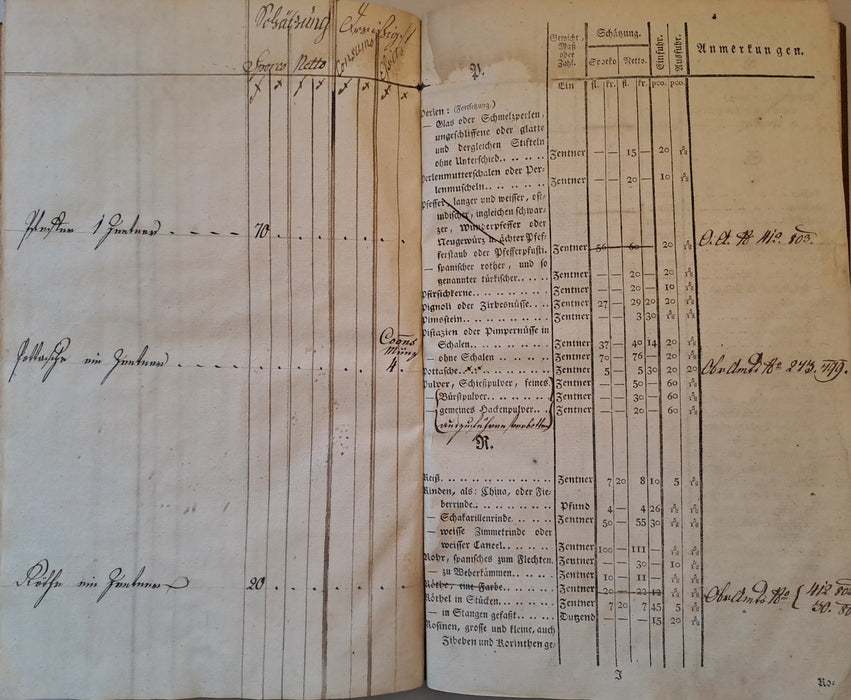 Schätzung
Sporco Netto
Pfeffer 1 Zentner 70
Pottasche ein Zentner 4.
Röthe ein Zentner 20
P.
Gewicht, Maß oder Zahl.
Schätzung.
Sporko Netto.
Einfuhr.
Ausfuhr.
Anmerkungen.
Ein fl. kr. fl. kr. pco. pco.
Perlen: (Fortsetzung.)
— Glas oder Schmelzperlen,
ungeschliffene oder glatte
und dergleichen Stifteln
ohne Unterschied. Zentner — — 15 — 20 5/12
Perlenmutterschalen oder Per-
lenmuscheln. Zentner — — 20 — 10 5/12
Pfeffer, langer und weisser, ost-
indischer, ingleichen schwar-
zer, Wunderpfeffer oder
Neugewürz u. ächter Pfef-
ferstaub oder Pfefferpfusti. Zentner 56 — 60 — 20 5/12 O. A. No 412. 803.
— spanischer rother, und so
genannter türkischer. Zentner — — 20 — 20 5/12
Pfirsichkerne. Zentner — — 20 — 10 5/12
Pignoli oder Zirbesnüsse. Zentner 27 — 29 20 20 5/12
Pimsstein. Zentner — — 3 30 5/12 5/12
Pistazien oder Pimpernüsse in
Schalen. Zentner 37 — 40 14 20 5/12
— ohne Schalen Zentner 70 — 76 — 20 5/12
Pottasche. Zentner 5 — 5 30 20 20 No 243. 799.
Pulver, Schießpulver, feines Zentner — — 50 — 60 5/12
— Bürstpulver. Zentner — — 30 — 60 5/12
— gemeines Hackenpulver. Zentner — — 20 — 60 5/12
auszuführen verbotten
R.
Reiß. Zentner 7 20 8 10 5 5/12
Rinden, als: China, oder Fie-
berrinde. Pfund 4 — 4 26 5/12 5/12
— Schakarillenrinde. Zentner 50 — 55 30 5/12 5/12
— weisse Zimmetrinde oder
weisser Caneel. Zentner 100 — 111 — 5/12 5/12
Rohr, spanisches zum Flechten. Zentner — — 30 — 10 5/12
— zu Weberkämmen. Zentner 10 — 11 — 5/12 5/12
Röthe, eine Farbe. Zentner 20 — 22 12 5/12 5/12 No { 412 50.
Röthel in Stücken. Zentner 7 20 7 45 5 5/12
— in Stangen gefaßt. Dutzend — — — 15 20 5/12
Rosinen, grosse und kleine, auch
Zibeben und Korinthen ge-
I
Ro-